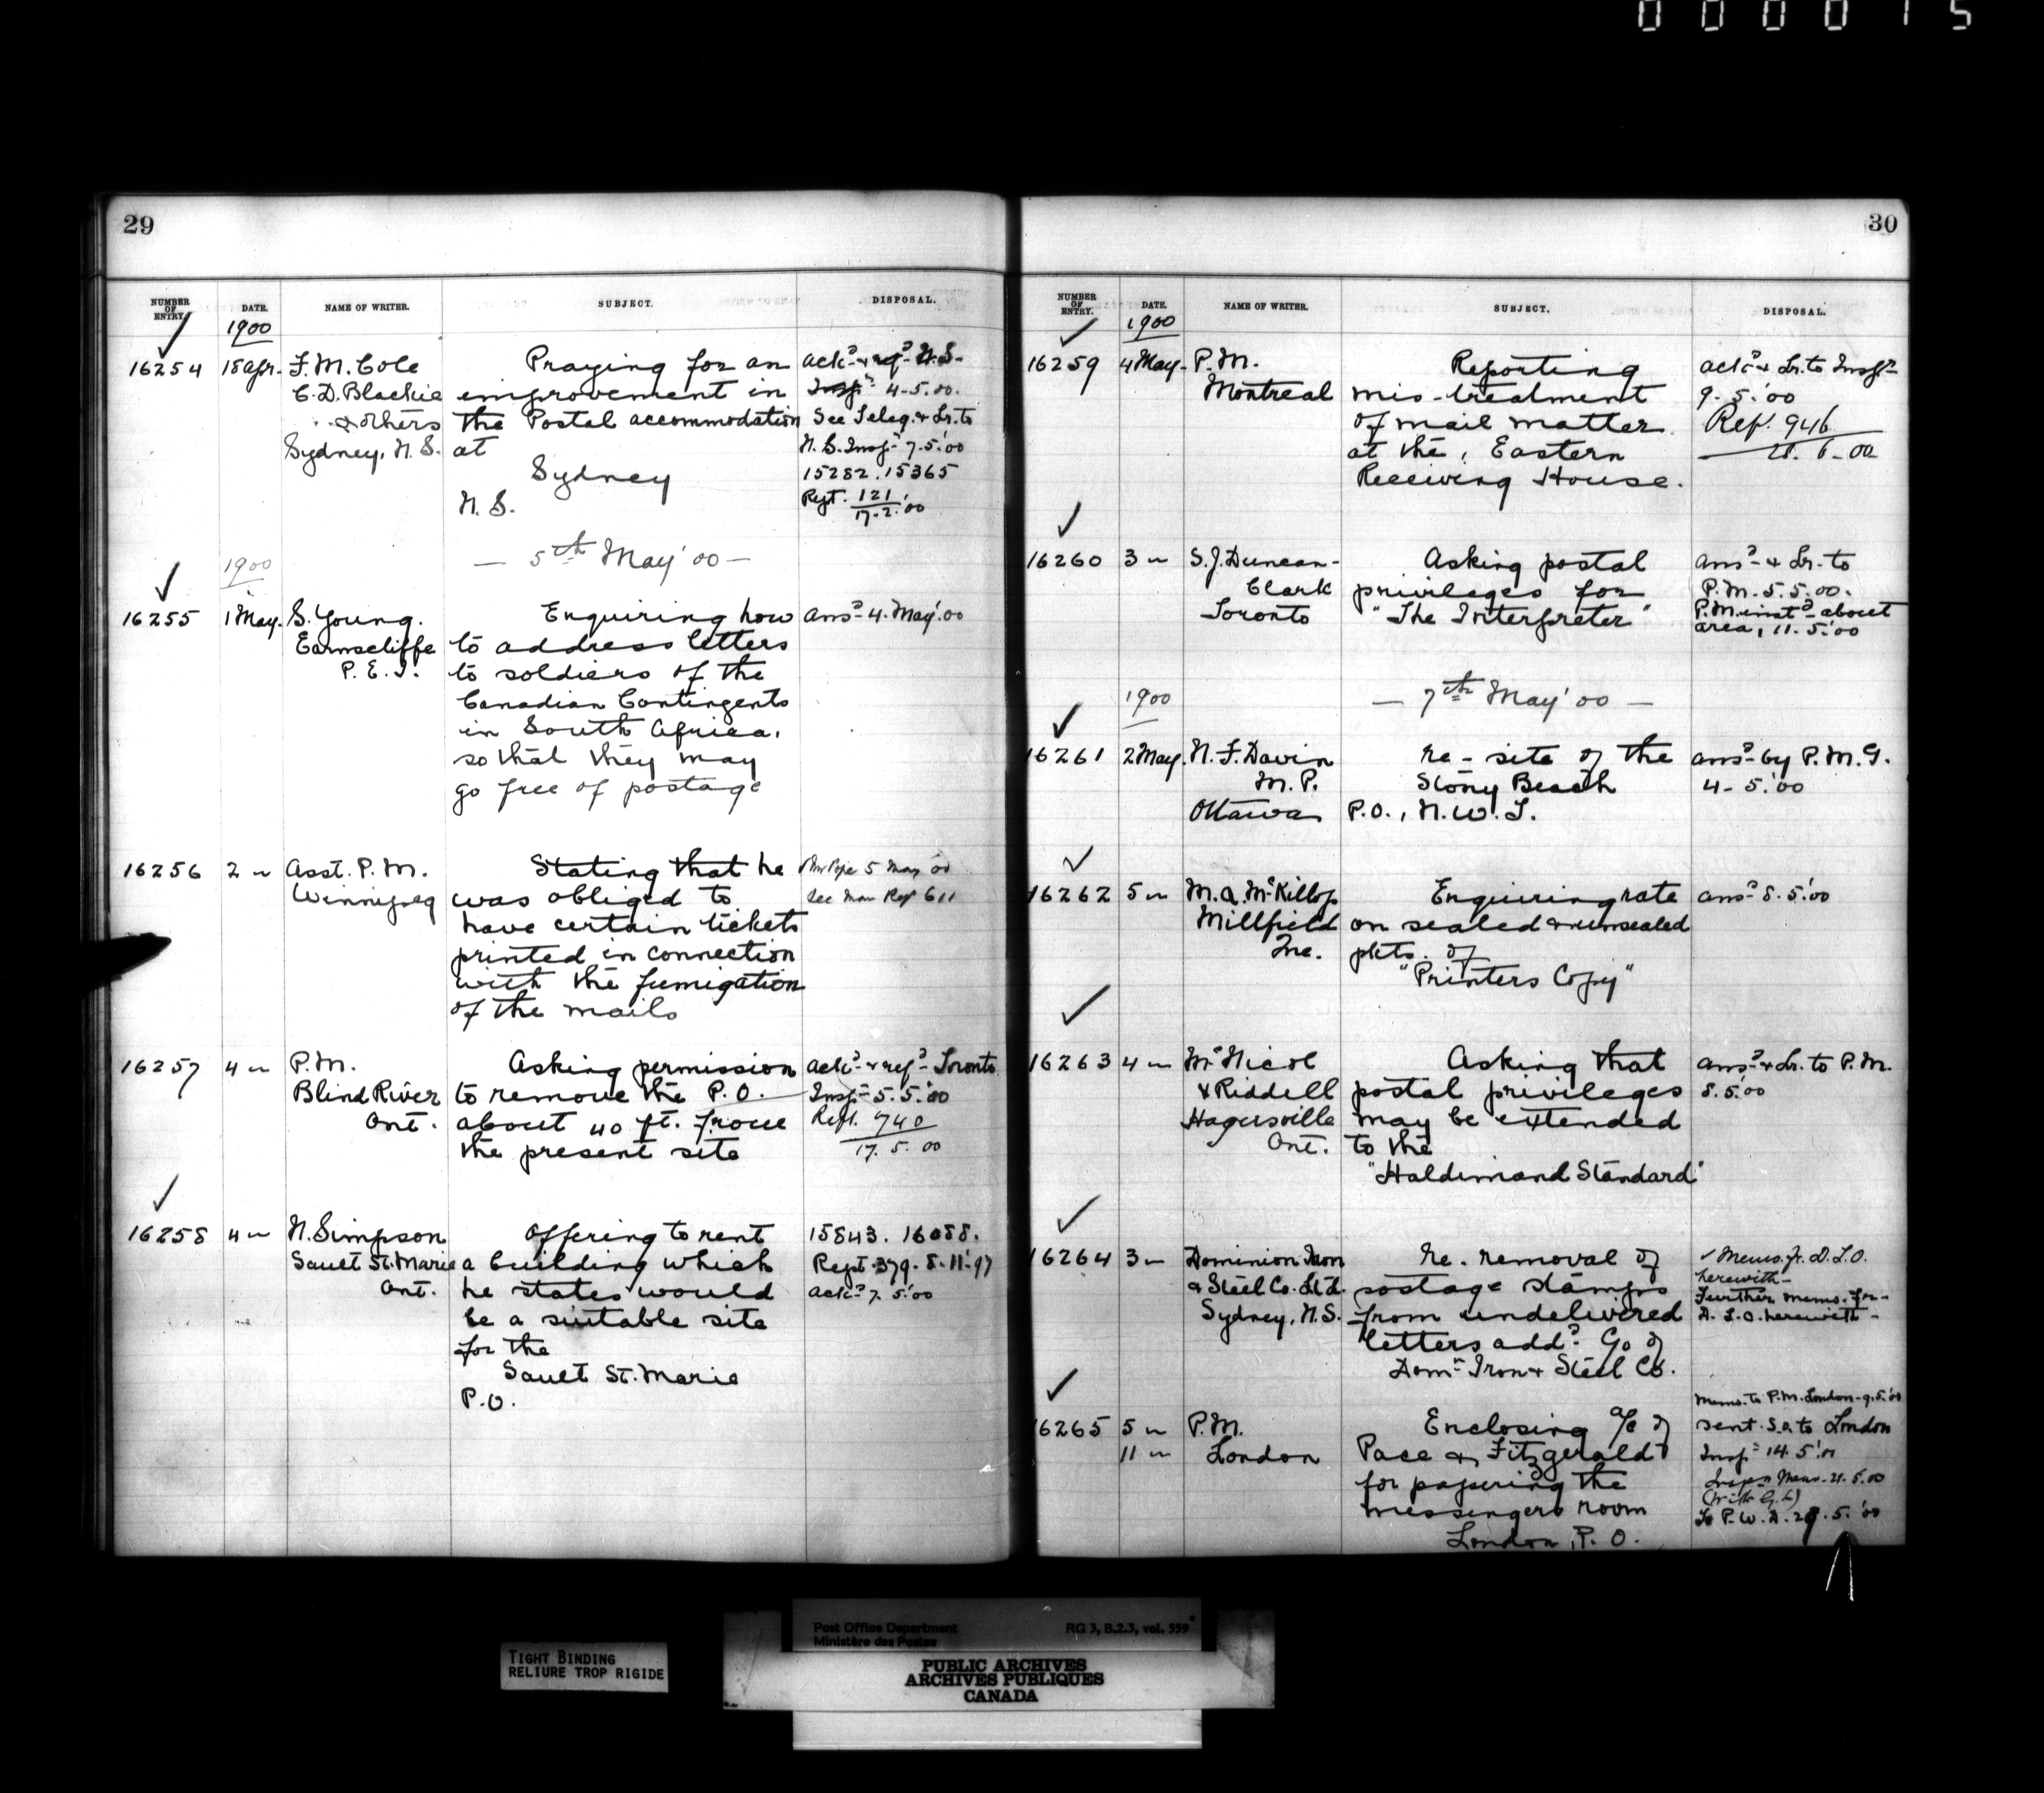 000015
29
NUMBER OF ENTRY. DATE. NAME OF WRITER. SUBJECT. DISPOSAL.
1900
16254 18 Apr. F. M. Cole Praying for an ack.d & ref.d N.S.
C. D. Blackie improvement in Insp.r 4-5.00.
& others the Postal accommodation See Teleg. & Lr. to
Sydney, N.S. at N.S. Insp.r 7.5.'00
Sydney 15282. 15365
N.S. Rept. 121
17.2.'00
— 5th May '00 —
1900
16255 1 May. S. Young. Enquiring how ans.d 4. May '00
Earnscliffe to address letters
P. E. I. to soldiers of the
Canadian Contingents
in South Africa,
so that they may
go free of postage
16256 2 " Asst. P. M. Stating that he 5 May 00
Winnipeg was obliged to See 611
have certain tickets
printed in connection
with the fumigation
of the mails
16257 4 " P.M. Asking permission ack.d & ref.d Toronto
Blind River to remove the P.O. Insp.r 5.5.'00
Ont. about 40 ft. from Rept. 740
the present site 17. 5. 00
16258 4 " N. Simpson Offering to rent 15843. 16088.
Sault St. Marie a building which Rept. 379. 8.11.'97
Ont. he states would ack.d 7.5.'00
be a suitable site
for the
Sault St. Marie
P.O.
30
NUMBER OF ENTRY. DATE. NAME OF WRITER. SUBJECT. DISPOSAL.
1900
16259 4 May. P.M. Reporting ack.d & Lr. to Insp.r
Montreal mis-treatment 9.5.'00
of mail matter Ref. 946
at the, Eastern 6-00
Receiving House.
16260 3 " S. J. Duncan- Asking postal ans.d & Lr. to
Clark privileges for P.M. 5.5.00.
Toronto "The Interpreter" P.M. inst.d about
area, 11.5.'00
1900 — 7th May '00 —
16261 2 May. N. F. Davin re- site of the ans.d by P.M.G.
M.P. Stony Beach 4-5.'00
Ottawa P.O., N.W.T.
16262 5 " M. A. McKillop Enquiring rate ans.d 8.5.'00
Millfield on sealed & unsealed
Que. pkts. of
"Printers Copy"
16263 4 " McNicol Asking that ans.d & Lr. to P.M.
& Riddell postal privileges 8.5.'00
Hagersville may be extended
Ont. to the
"Haldimand Standard"
16264 3 " Dominion Iron re. removal of Memo. fr. D.L.O.
& Steel Co. Ltd. postage stamps herewith-
Sydney, N.S. from undelivered Further memo. fr-
letters add.d Co of D.L.O. herewith-
Dom.n Iron & Steel Co.
Memo. to P.M. London-9.5.'00
16265 5 " P.M. Enclosing a/c of sent S.a. to London
11 " London Pace & Fitzgerald Insp.r 14.5.'00
for papering the Memo-21.5.00
messengers room
London, P.O. To P.W.D. 29.5.'00
Post Office Department RG 3, B.2.3, vol. 559
Ministère des Postes
TIGHT BINDING
RELIURE TROP RIGIDE
PUBLIC ARCHIVES
ARCHIVES PUBLIQUES
CANADA